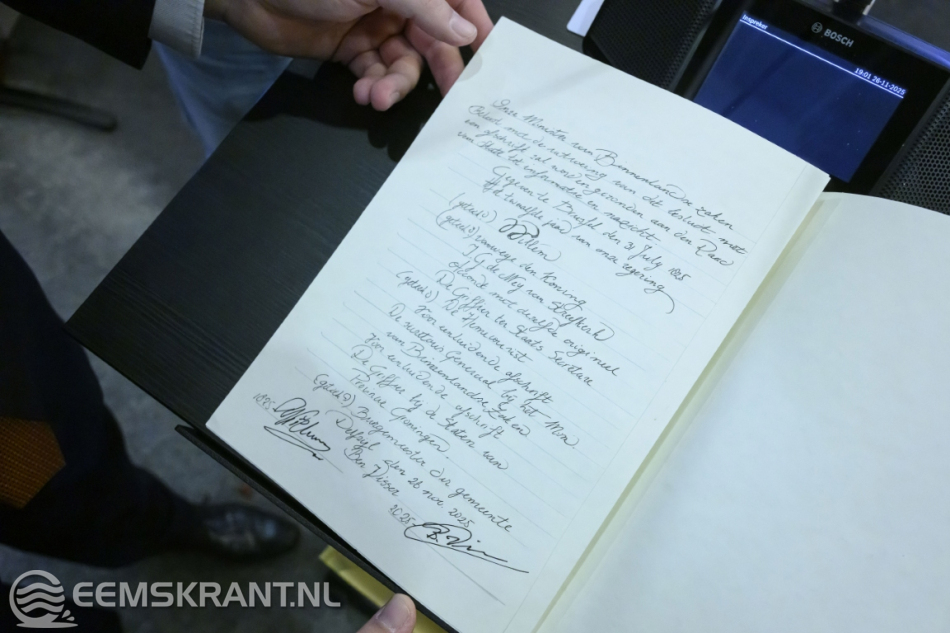 Inspreker
BOSCH
19:01 26-11-2025
Onze Minister van Binnenlandse zaken
belast met de uitvoering van dit besluit
een afschrift zal worden gezonden aan den Raad
van State tot informatie en narigt
Gegeven te Brussel den 31 July 1825
Het twaalfde jaar van onze regering
(geteld) Willem
(geteld) vanwege den Koning
J.G. de Mey van Streefkerk
accordeert met deszelfs origineel
De Griffier ter Staats Secretarie
(geteld) De
Voor eensluidende afschrift
De secretaris Generaal bij het Min.
van Binnenlandse Zaken
Voor eensluidende afschrift
De Griffier bij de Staten van
Provincie Groningen
(geteld) Burgemeester der gemeente
Delfzijl den 26 nov. 2025
Ben Visser
1825
2025
EEMSKRANT.NL